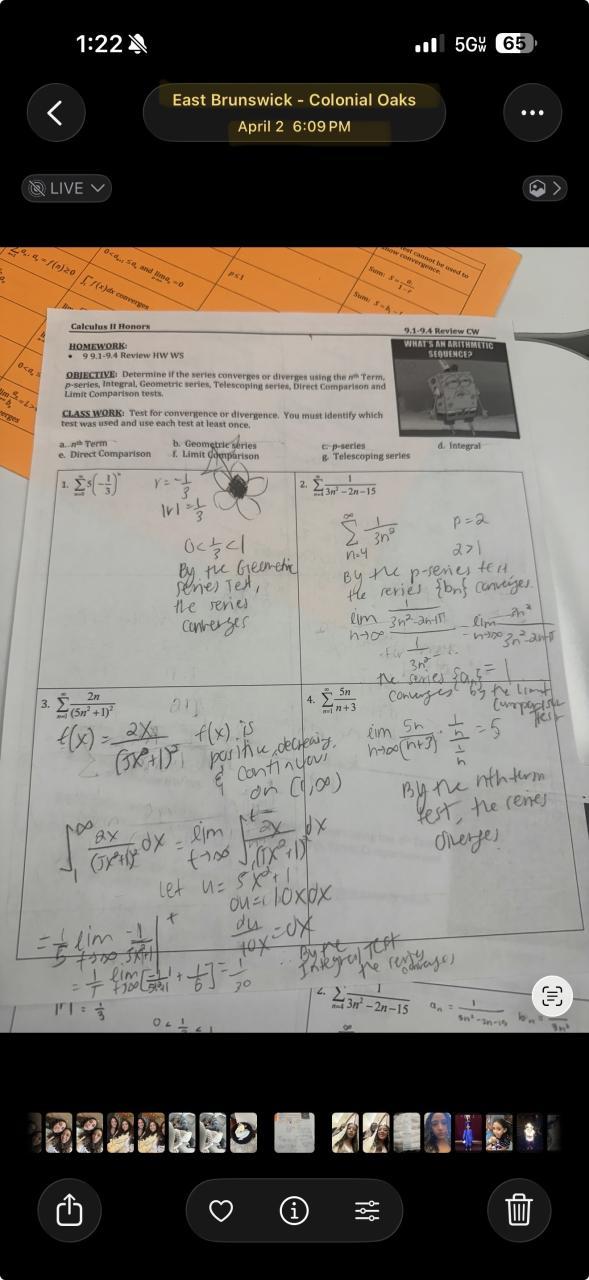 1:22
5G
65
East Brunswick - Colonial Oaks
April 2 6:09 PM
LIVE
Calculus II Honors
9.1-9.4 Review CW
HOMEWORK:
• 9 9.1-9.4 Review HW WS
WHAT'S AN ARITHMETIC
SEQUENCE?
OBJECTIVE: Determine if the series converges or diverges using the nth Term,
p-series, Integral, Geometric series, Telescoping series, Direct Comparison and
Limit Comparison tests.
CLASS WORK: Test for convergence or divergence. You must identify which
test was used and use each test at least once.
a. nth Term b. Geometric series c. p-series d. Integral
e. Direct Comparison f. Limit Comparison g. Telescoping series
1. ∑ 5(-1/3)^n
r = -1/3
|r| = 1/3
0 < 1/3 < 1
By the Geometric
Series Test,
the series
converges
2. ∑ 1/(3n² - 2n - 15)
∞ ∑ n=4 1/3n² p = 2
2 > 1
By the p-series test
the series {bn} converges.
lim n→∞
1/3n²
= 1
the series {an}
converges by the limit
comparison
test
3. ∑ 2n/(5n² + 1)²
f(x) = 2x/(5x²+1)² f(x) is
positive, decreasing,
& continuous
on [1,∞)
∫₁^∞ 2x/(5x²+1)² dx = lim t→∞ ∫₁^t 2x/(5x²+1)² dx
let u = 5x²+1
du = 10xdx
du/10x = dx
= 1/5 lim t→∞ -1/5x²+1 |
= 1/30
By the
Integral Test
the series
converges
4. ∑ 5n/(n + 3)
lim n→∞ 5n/(n+3) · 1/n / 1/n = 5
By the nth term
test, the series
diverges
2. ∑ 1/(3n² - 2n - 15)